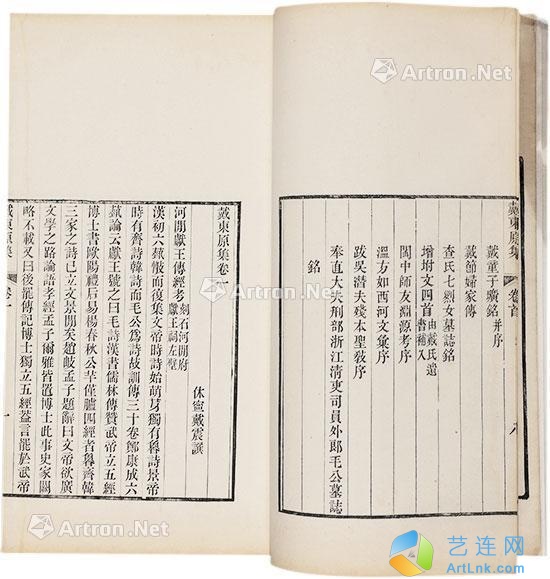 戴東原集 卷首 八
戴童子壙銘 并序
戴節婦家傳
查氏七烈女墓誌銘
增坿文四首 由戴氏遺書補入
閩中師友淵源考序
溫方如西河文彙序
跋吳潛夫殘本聖教序
奉直大夫刑部浙江清吏司員外郎毛公墓誌
銘
戴東原集卷一
休寧戴震譔
河閒獻王傳經考 刻石河閒府獻王祠左壁
漢初六蓺散而復集文帝時詩始萌芽獨有魯詩景帝
時有齊詩韓詩而毛公為詩故訓傳三十卷鄭康成六
蓺論云獻王號之曰毛詩漢書儒林傳贊武帝立五經
博士書歐陽禮后易楊春秋公羊僅臚四經者魯齊韓
三家之詩已立文景閒矣趙岐孟子題辭曰文帝欲廣
文學之路論語孝經孟子爾雅皆置博士此事史家闕
略不載又曰後罷傳記博士獨立五經蓋言罷於武帝
戴東原集 卷一 一
Artron.Net
Artron.Net
Artron.Net
Artron.Net
艺连网
ArtLnk.com